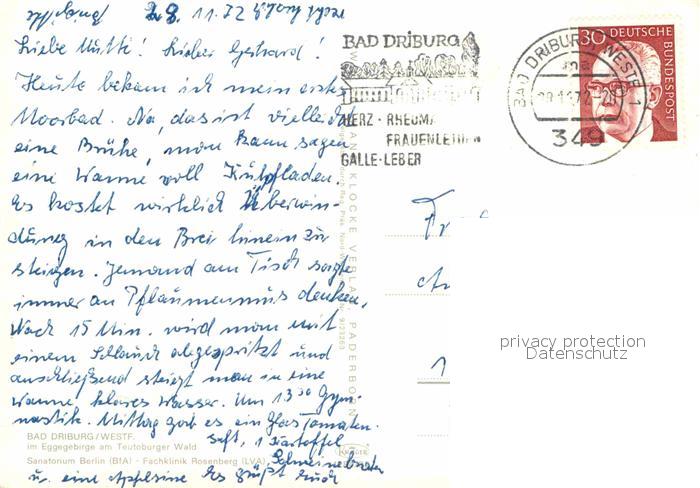 28.11.72
Liebe Mutti! Lieber Gerhard!
Heute bekam ich mein erstes
Moorbad. Na, das ist vielleicht
eine Brühe, man kann sagen
eine Wanne voll Kuhfladen.
Es kostet wirklich Überwin-
dung in den Brei hinein zu
steigen. Jemand am Tisch sagte
immer an Pflaumenmus denken.
Nach 15 Min. wird man mit
einem Schlauch abgespritzt und
anschließend steigt man in eine
Wanne klares Wasser. Um 13 30 Gym-
nastik. Mittag gab es ein Glas Tomaten-
saft, 1 Kartoffel
Schweinebraten
u. eine Apfelsine Es grüßt Euch
BAD DRIBURG/WESTF.
im Eggegebirge am Teutoburger Wald
Sanatorium Berlin (BfA) - Fachklinik Rosenberg (LVA)
KRÜGER
BAD DRIBURG
HERZ · RHEUMA
FRAUENLEIDEN
GALLE-LEBER
BAD DRIBURG, WESTF 1
349
30 DEUTSCHE
BUNDESPOST
KLOCKE VERLAG PADERBORN
9/23263
Fr
privacy protection
Datenschutz